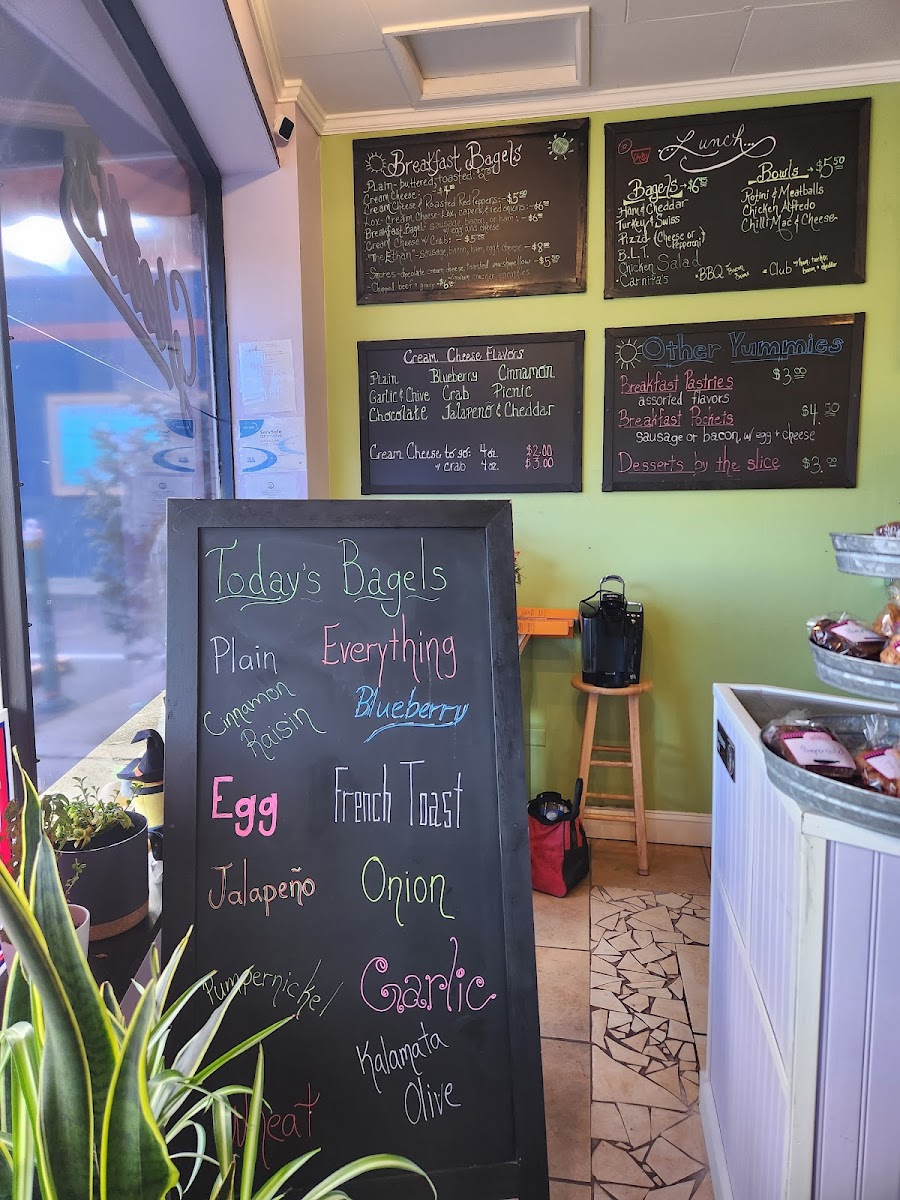 Breakfast Bagels
Plain - buttered, toasted:
Cream Cheese:
Cream Cheese & Roasted Red Peppers: - $5.50
Lox - Cream Cheese, Lox, capers & red onions - $6.00
Breakfast Bagel: sausage, bacon, or ham: - $6.00
w/egg and cheese
Cream Cheese w/ Crab: - $5.00
"The Ethan" - sausage, bacon, ham, egg & cheese - $8.00
S'mores - chocolate cream cheese, toasted marshmallow - $5.50
- Chipped beef & gravy -
Lunch
Bagels → $6.50
Ham & Cheddar
Turkey & Swiss
Pizza (Cheese or Pepperoni)
B.L.T.
Chicken Salad
Carnita's
• BBQ
• Club
Bowls → $5.50
Rotini & Meatballs
Chicken Alfredo
Chilli Mac & Cheese
Cream Cheese Flavors
Plain Blueberry Cinnamon
Garlic & Chive Crab Picnic
Chocolate Jalapeño & Cheddar
Cream Cheese to go: 4oz. $2.00
& crab 4oz. $3.00
Other Yummies
Breakfast Pastries $3.00
assorted flavors
Breakfast Pockets $4.50
sausage or bacon w/ egg & cheese
Desserts by the slice $3.00
Today's Bagels
Plain Everything
Cinnamon Raisin
Blueberry
Egg French Toast
Jalapeño Onion
Pumpernickel Garlic
Kalamata
Olive
Wheat